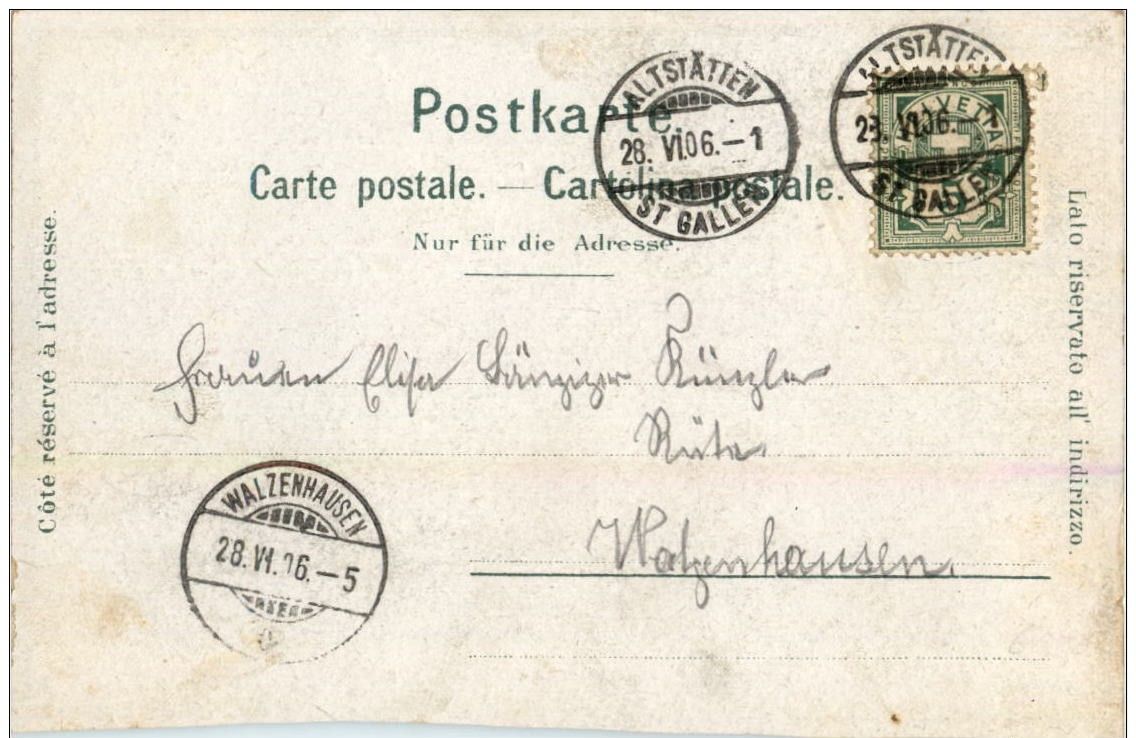 ALTSTÄTTEN
28. VI.06.–1
ST GALLEN
ALTSTÄTTEN
28. VI.06.
ST GALLEN
HELVETIA
5
Postkarte.
Carte postale. — Cartolina postale.
Nur für die Adresse.
Côté réservé à l'adresse.
Lato riservato all' indirizzo.
Frauen Elisa Künzler
Rüte
Walzenhausen.
WALZENHAUSEN
28.VI.06.–5